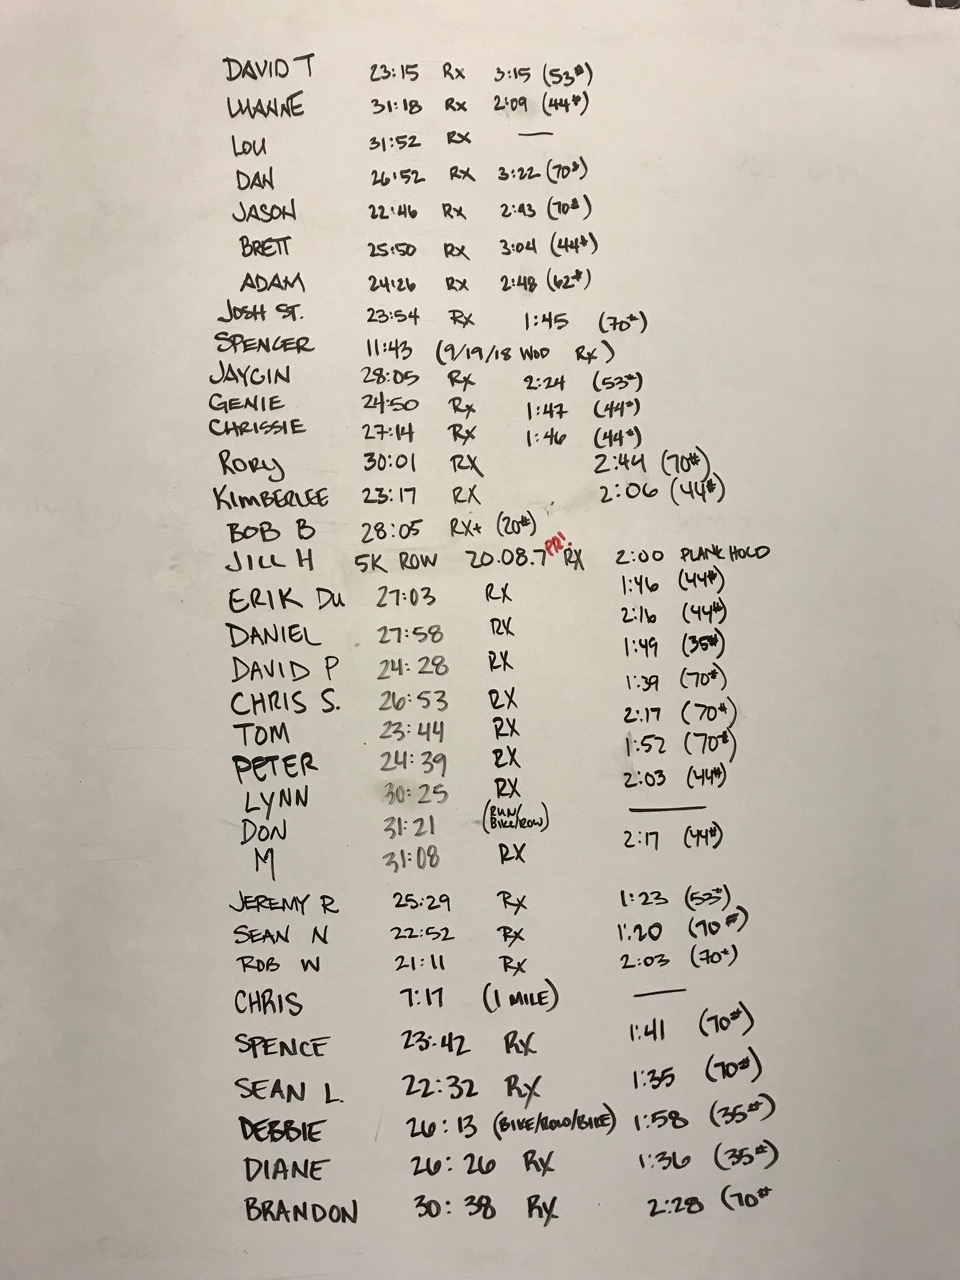 DAVID T 23:15 Rx 3:15 (53#)
LUANNE 31:18 Rx 2:09 (44#)
LOU 31:52 RX —
DAN 26:52 RX 3:22 (70#)
JASON 22:46 RX 2:43 (70#)
BRETT 25:50 RX 3:04 (44#)
ADAM 24:26 RX 2:48 (62#)
JOSH ST. 23:54 RX 1:45 (70#)
SPENCER 11:43 (9/19/18 WOD Rx)
JAYCIN 28:05 Rx 2:24 (53#)
GENIE 24:50 Rx 1:47 (44#)
CHRISSIE 27:14 Rx 1:46 (44#)
RORY 30:01 RX 2:44 (70#)
KIMBERLEE 23:17 RX 2:06 (44#)
BOB B 28:05 RX+ (20#)
JILL H 5K ROW 20.08.7 PR! RX 2:00 PLANK HOLD
ERIK DU 27:03 RX 1:46 (44#)
DANIEL 27:58 RX 2:16 (44#)
DAVID P 24:28 RX 1:49 (35#)
CHRIS S. 26:53 RX 1:39 (70#)
TOM 23:44 RX 2:17 (70#)
PETER 24:39 RX 1:52 (70#)
LYNN 30:25 RX 2:03 (44#)
DON 31:21 (RUN/BIKE/ROW) —
M 31:08 RX 2:17 (44#)
JEREMY R 25:29 Rx 1:23 (53#)
SEAN N 22:52 Rx 1:20 (70#)
ROB W 21:11 Rx 2:03 (70#)
CHRIS 7:17 (1 MILE) —
SPENCE 23:42 RX 1:41 (70#)
SEAN L. 22:32 RX 1:35 (70#)
DEBBIE 26:13 (BIKE/ROW/BIKE) 1:58 (35#)
DIANE 26:26 RX 1:36 (35#)
BRANDON 30:38 RX 2:28 (70#